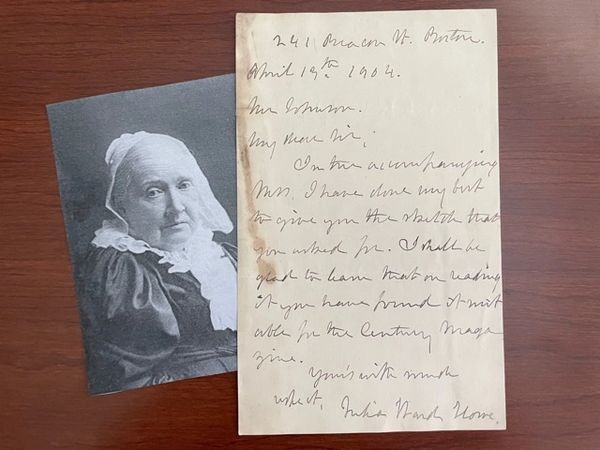 241 Beacon St. Boston.
April 19th 1904.
Mr Johnson.
My dear Sir;
In the accompanying
Mss. I have done my best
to give you the sketch that
you asked for. I shall be
glad to learn that on reading
it you have found it suit
able for the Century Maga
zine.
Yours with much
respect,
Julia Ward Howe.